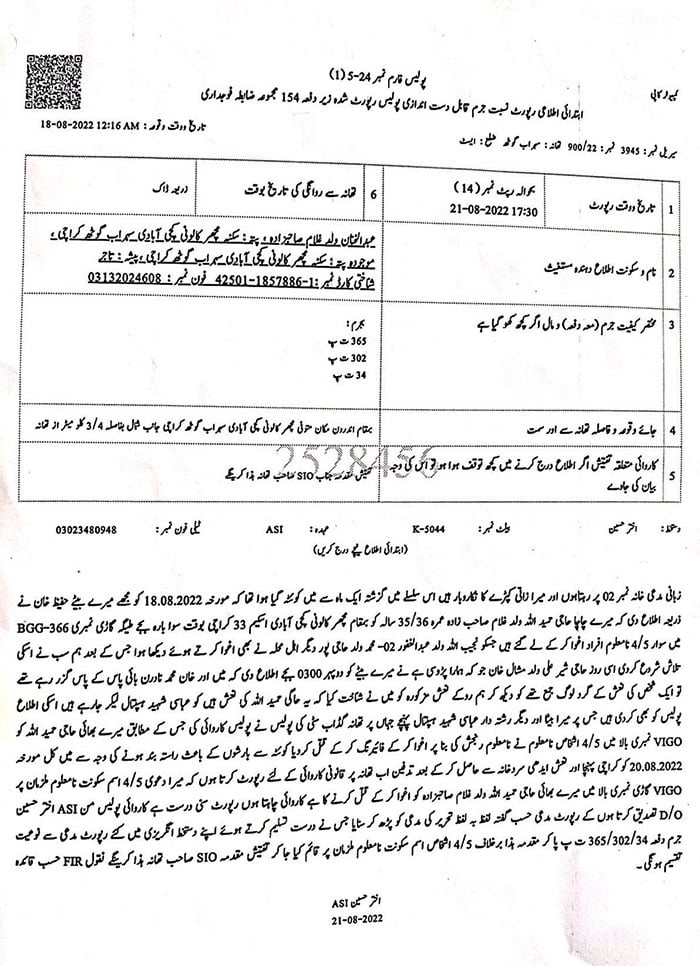 پولیس فارم نمبر 24-5 (1)
کمپیوٹر کاپی
ابتدائی اطلاعی رپورٹ نسبت جرم قابل دست اندازی پولیس رپورٹ شدہ زیر دفعہ 154 مجموعہ ضابطہ فوجداری
سیریل نمبر: 3945 نمبر: 900/22 تھانہ: سہراب گوٹھ ضلع: ایسٹ
تاریخ و وقت وقوعہ: 18-08-2022 12:16 AM
1 تاریخ و وقت رپورٹ
بحوالہ رپٹ نمبر (14)
21-08-2022 17:30
6 تھانہ سے روانگی کی تاریخ بوقت
ذریعہ ڈاک
2 نام و سکونت اطلاع دہندہ مستغیث
عبدالمنان ولد غلام صاحبزادہ، پتہ: سکنہ مچھر کالونی کچی آبادی سہراب گوٹھ کراچی،
موجودہ پتہ: سکنہ مچھر کالونی کچی آبادی سہراب گوٹھ کراچی، پیشہ: تاجر
شناختی کارڈ نمبر: 42501-1857886-1 فون نمبر: 03132024608
3 مختصر کیفیت جرم (معہ دفعہ) و مال اگر کچھ کھو گیا ہے
بجرم:
365 ت پ
302 ت پ
34 ت پ
4 جائے وقوعہ و فاصلہ تھانہ سے اور سمت
بمقام اندرون مکان متوفی مچھر کالونی کچی آبادی سہراب گوٹھ کراچی جانب شمال بفاصلہ 3/4 کلو میٹر از تھانہ
5 کاروائی متعلقہ تفتیش اگر اطلاع درج کرنے میں کچھ توقف ہوا ہو تو اس کی وجہ
بیان کی جاوے
تفتیش مقدمہ جناب SIO صاحب تھانہ ہذا کریںگے
2528456
دستخط: اختر حسین بیلٹ نمبر: K-5044 عہدہ: ASI ٹیلی فون نمبر: 03023480948
(ابتدائی اطلاع نیچے درج کریں)
زبانی مدعی خانہ نمبر 02 پر رہتا ہوں اور میرا ذاتی کپڑے کا کاروبار ہیں اس سلسلے میں گزشتہ ایک ماہ سے میں کوئٹہ گیا ہوا تھا کہ مورخہ 18.08.2022 کو مجھے میرے بیٹے حفیظ خان نے
ذریعہ اطلاع دی کہ میرے چاچا حاجی حمید اللہ ولد غلام صاحب زادہ عمرہ 35/36 سالہ کو بمقام مچھر کالونی کچی آبادی اسکیم 33 کراچی بوقت سوا بارہ بجے ٹیلیگہ گاڑی نمبری BGG-366
میں سوار 4/5 نامعلوم افراد اغوا کر کے لے گئے ہیں جسکو نجیب اللہ ولد عبدالغفور 02- محمد ولد حاجی پور دیگر اہل محلہ نے بھی اغوا کرتے ہوئے دیکھا ہوا جس کے بعد ہم سب نے اسکی
تلاش شروع کردی اسی روز حاجی شیر علی ولد مشال خان جو کہ ہمارا پڑدی ہے نے میرے بیٹے کو دوپہر 0300 بجے اطلاع دی کہ میں اور خان محمد ناردرن بائی پاس کے پاس گزر رہے تھے
تو ایک شخص کی نعش کے گرد لوگ جمع تھے کو دیکھ کر ہم روکے نعش مزکورہ کو میں نے شناخت کیا کہ یہ حاجی حمید اللہ کی نعش ہیں کو عباسی شہید ہسپتال لیکر جارہے ہیں اسکی اطلاع
پولیس کو بھی کردی ہیں جس پر میرا بیٹا اور دیگر رشتہ دار عباسی شہید ہسپتال پہنچے جہاں پر تھانہ گڈاپ سٹی کی پولیس نے پولیس کاروائی کی جس کے مطابق میرے بھائی حاجی حمید اللہ کو
VIGO نمبری بالا میں 4/5 اشخاص نامعلوم نے نامعلوم رنجش کی بنا پر اغوا کر کے فائرنگ کر کے قتل کردیا کوئٹہ سے بارشوں کے باعث راستہ بند ہونے کی وجہ سے میں کل مورخہ
20.08.2022 کو کراچی پہنچا اور نعش ایدھی سردخانہ سے حاصل کر کے بعد تدفین اب تھانہ پر قانونی کاروائی کے لئے رپورٹ کرتا ہوں کہ میرا دعوی 4/5 اسم سکونت نامعلوم ملزمان پر
VIGO گاڑی نمبری بالا میں میرے بھائی حاجی حمید اللہ ولد غلام صاحبزادہ کو اغوا کر کے قتل کرنے کا ہے کاروائی چاہتا ہوں رپورٹ سنی درست ہے کاروائی پولیس من ASI اختر حسین
D/O تصدیق کرتا ہوں کے رپورٹ مدعی حسب گفتہ لفظ بہ لفظ تحریر کی مدعی کو پڑھ کر سنایا جس نے درست تسلیم کرتے ہوئے اپنے دستخط انگریزی میں کئے رپورٹ مدعی سے نوعیت
جرم دفعہ 365/302/34 ت پ پا کر مقدمہ ہذا برخلاف 4/5 اشخاص اسم سکونت نامعلوم ملزمان پر قائم کیا جا کر تفتیش مقدمہ SIO صاحب تھانہ ہذا کریںگے نقول FIR حسب قائدہ
تقسیم ہونگی۔
اختر حسین ASI
21-08-2022